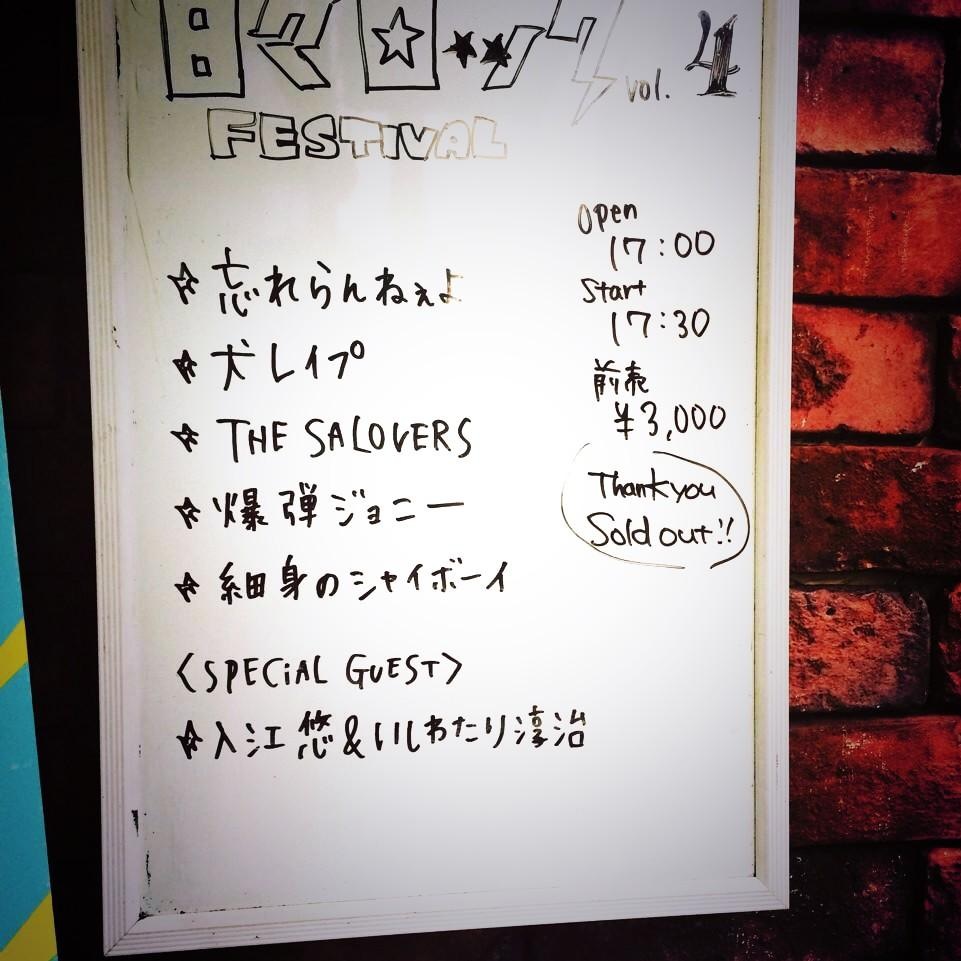 日々ロック vol.4
FESTIVAL
☆忘れらんねぇよ
☆犬レイプ
☆THE SALOVERS
☆爆弾ジョニー
☆細身のシャイボーイ
〈SPECiAL GUEST〉
☆入江悠&いしわたり淳治
Open
17:00
Start
17:30
前売
¥3,000
Thankyou
Sold out!!